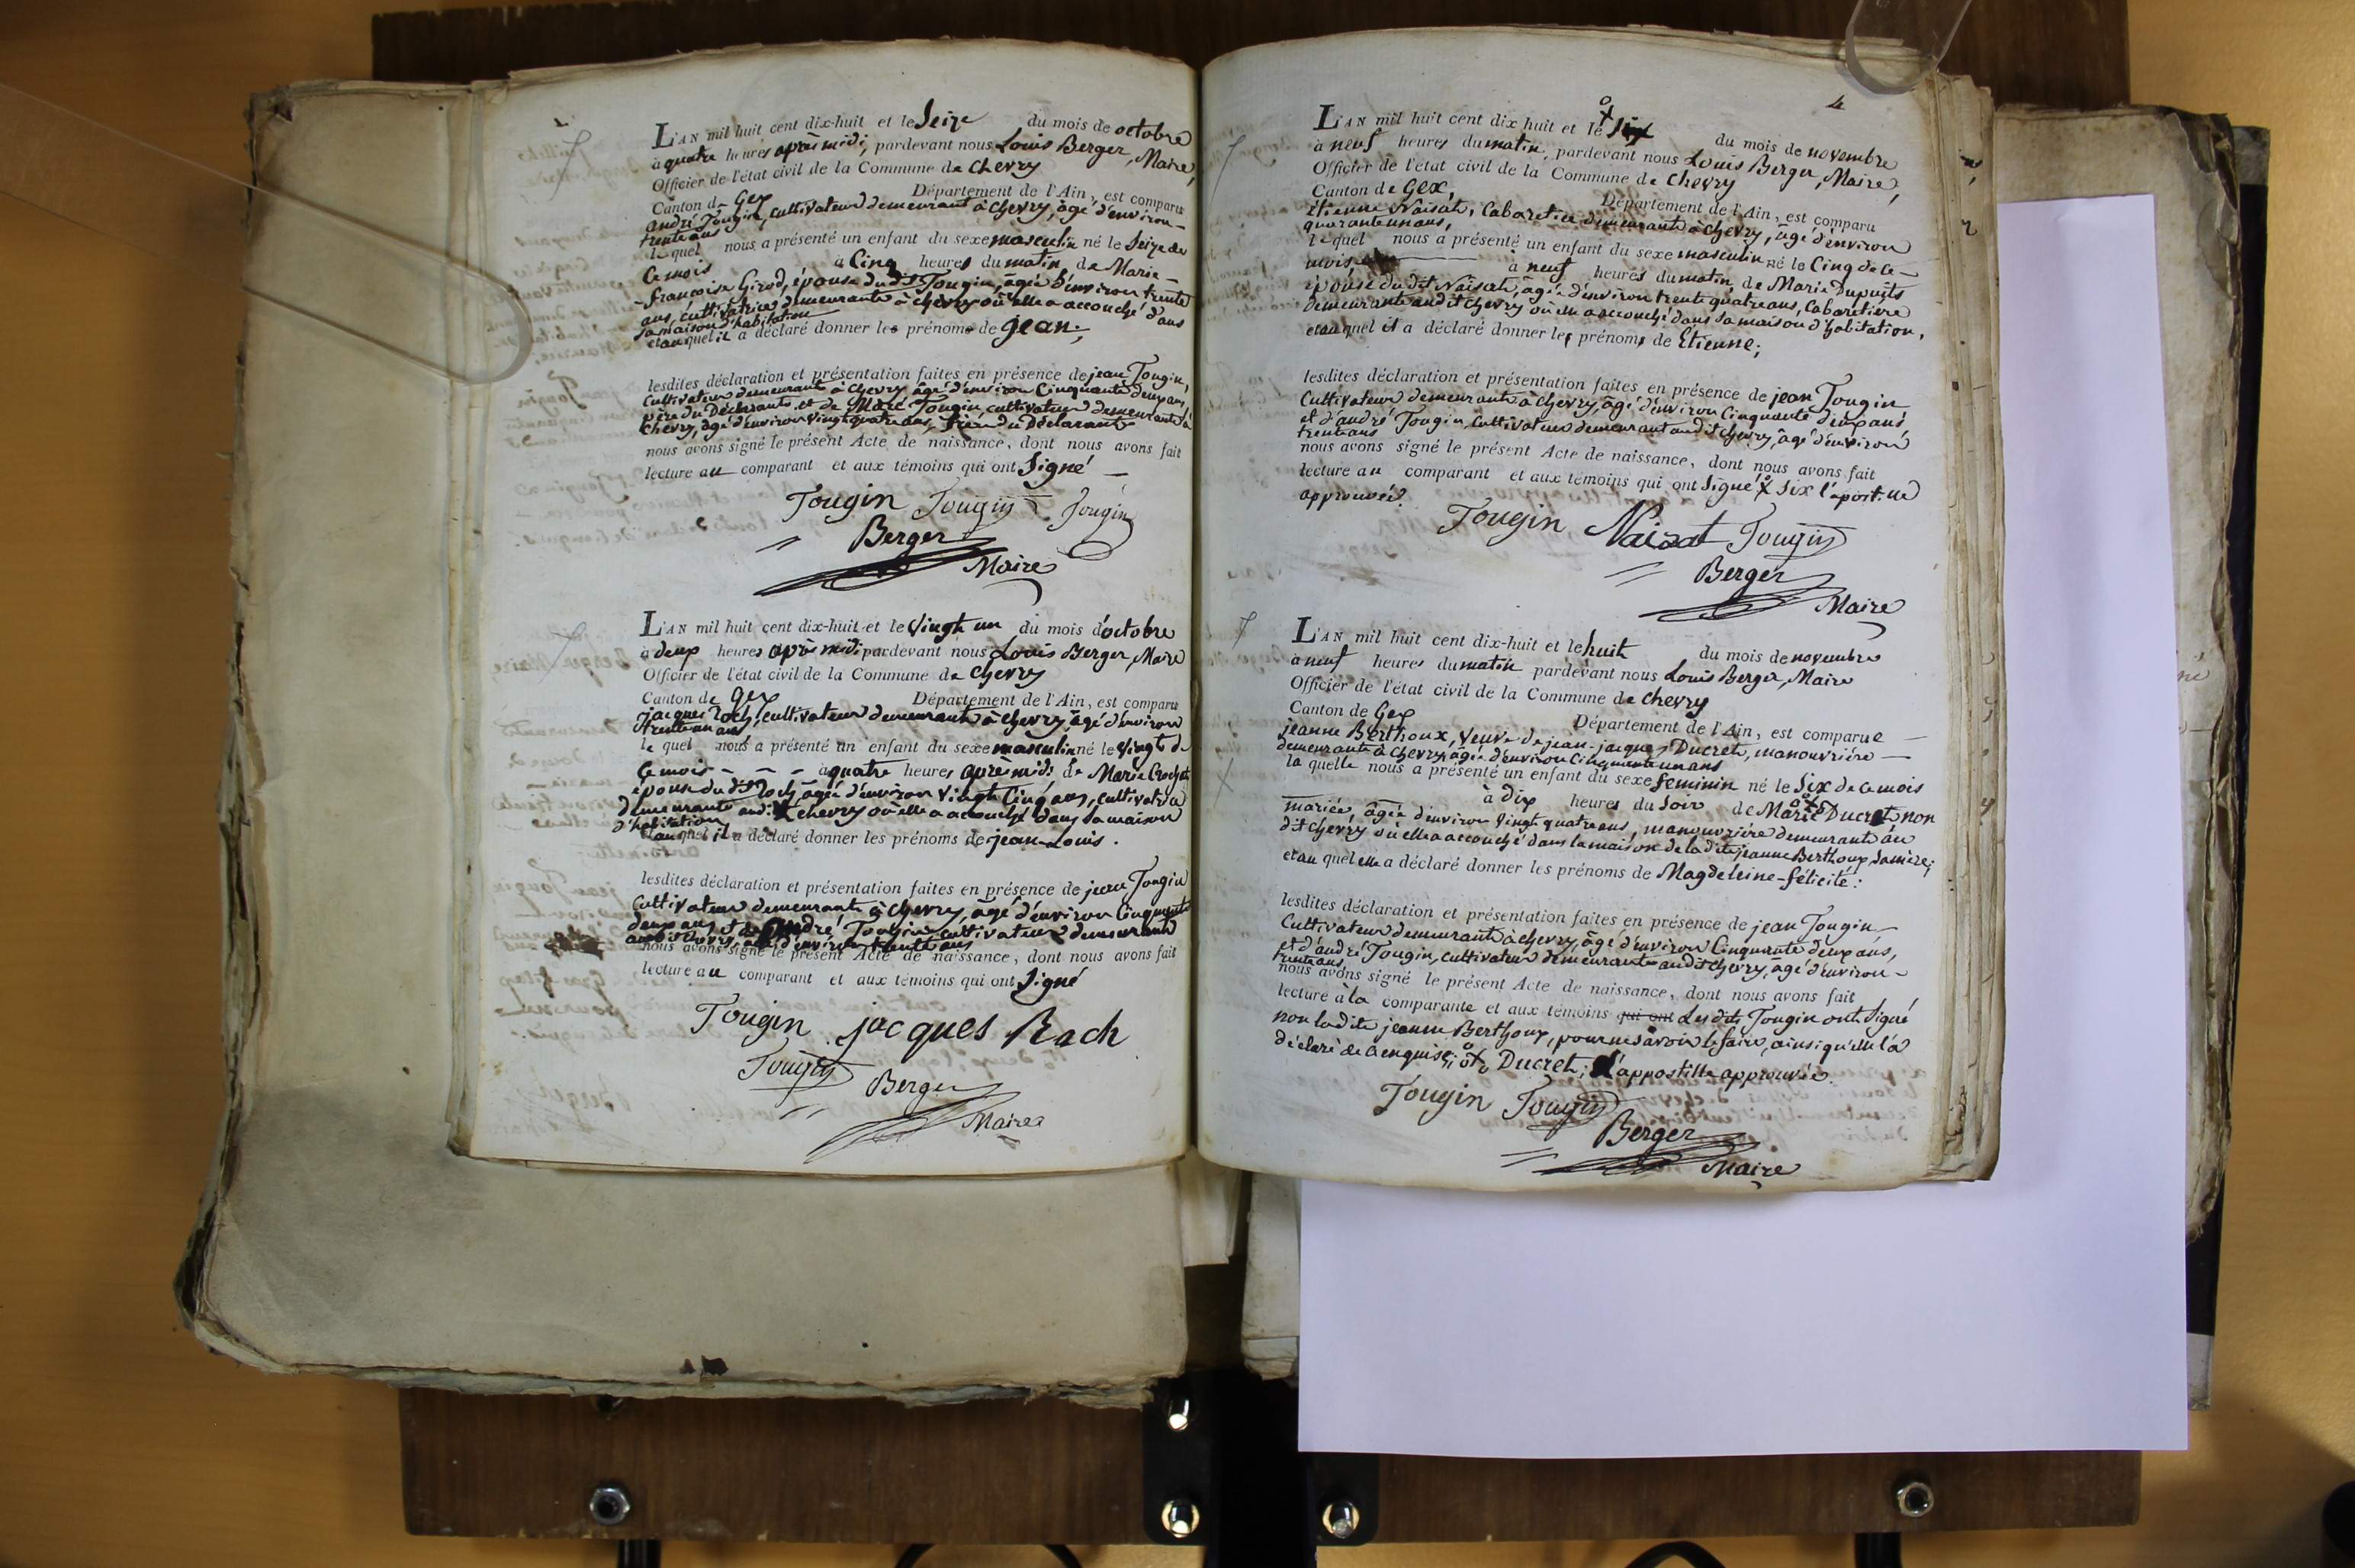 L'AN mil huit cent dix-huit et le Seize du mois de octobre
à quatre heures après midi, pardevant nous Louis Berger, Maire,
Officier de l'état civil de la Commune de Chevry
Canton de Gex Département de l'Ain, est comparu
andré Tougin, cultivateur demeurant à Chevry, âgé d'environ
trente ans
le quel nous a présenté un enfant du sexe masculin né le Seize de
ce mois à Cinq heures du matin de Marie
françoise Girod, épouse du dt Tougin, âgée d'environ trente
ans, cultivatrice demeurante à chevry où elle a accouché dans
sa maison d'habitation
et auquel il a déclaré donner les prénoms de jean;
lesdites déclaration et présentation faites en présence de jean Tougin,
Cultivateur demeurant à Chevry âgé d'environ Cinquante deux ans,
père du Déclarant et de Marc Tougin, cultivateur demeurant à
Chevry, âgé d'environ vingt quatre ans, frère du Déclarant
nous avons signé le présent Acte de naissance, dont nous avons fait
lecture au comparant et aux témoins qui ont Signé
Tougin Tougin Tougin
Berger
Maire
L'AN mil huit cent dix-huit et le Vingt un du mois d'octobre
à deux heures après midi pardevant nous Louis Berger, Maire
Officier de l'état civil de la Commune de Chevry
Canton de Gex Département de l'Ain, est comparu
jacques Roch, cultivateur demeurant à Chevry, âgé d'environ
trente un ans
le quel nous a présenté un enfant du sexe masculin né le Vingt de
ce mois à quatre heures après midi de Marie
épouse du dt Roch, âgée d'environ Vingt Cinq ans, cultivatrice
demeurante audit chevry où elle a accouché dans sa maison
d'habitation
et auquel il a déclaré donner les prénoms de jean-Louis.
lesdites déclaration et présentation faites en présence de jean Tougin
Cultivateur demeurant à Chevry, âgé d'environ Cinquante
deux ans et de André Tougin cultivateur demeurant
audit Chevry, âgé d'environ trente ans
nous avons signé le présent Acte de naissance, dont nous avons fait
lecture au comparant et aux témoins qui ont Signé
Tougin jacques Rach
Tougin Berger
Maire
4
L'AN mil huit cent dix huit et le six du mois de novembre
à neuf heures du matin, pardevant nous Louis Berger, Maire,
Officier de l'état civil de la Commune de Chevry
Canton de Gex, Département de l'Ain, est comparu
Etienne Naisat, Cabaretier demeurant à Chevry, âgé d'environ
quarante un ans,
le quel nous a présenté un enfant du sexe masculin né le Cinq de ce
mois à neuf heures du matin, de Marie Dupuits
épouse du dit Naisat, âgée d'environ trente quatre ans, Cabaretière
demeurante audit Chevry où elle a accouché dans sa maison d'habitation,
et auquel il a déclaré donner les prénoms de Etienne;
lesdites déclaration et présentation faites en présence de jean Tougin
Cultivateur demeurant à Chevry, âgé d'environ Cinquante deux ans,
et d'andré Tougin, cultivateur demeurant audit Chevry, âgé d'environ
trente ans
nous avons signé le présent Acte de naissance, dont nous avons fait
lecture au comparant et aux témoins qui ont Signé, Six l'apostille
approuvée.
Tougin Naizat Tougin
Berger
Maire
L'AN mil huit cent dix-huit et le huit du mois de novembre
à neuf heures du matin pardevant nous Louis Berger, Maire
Officier de l'état civil de la Commune de Chevry
Canton de Gex Département de l'Ain, est comparue
jeanne Berthoux, Veuve de jean-jacques Ducret, manouvrière
demeurante à Chevry, âgée d'environ Cinquante un ans
la quelle nous a présenté un enfant du sexe feminin né le Six de ce mois
à dix heures du Soir de Marie Ducret non
mariée, âgée d'environ Vingt quatre ans, manouvrière demeurante au
dit Chevry où elle a accouché dans la maison de la dite jeanne Berthoux, sa mère;
et au quel elle a déclaré donner les prénoms de Magdeleine-félicité:
lesdites déclaration et présentation faites en présence de jean Tougin
Cultivateur demeurant à chevry, âgé d'environ Cinquante deux ans,
et d'andré Tougin, cultivateur demeurant audit Chevry, âgé d'environ
trente ans
nous avons signé le présent Acte de naissance, dont nous avons fait
lecture à la comparante et aux témoins qui ont Les dits Tougin ont Signé
non ladite jeanne Berthoux, pour ne savoir le faire, ainsi qu'elle l'a
déclaré de ce enquise; Ducret; l'appostille approuvée.
Tougin Tougin
Berger
Maire